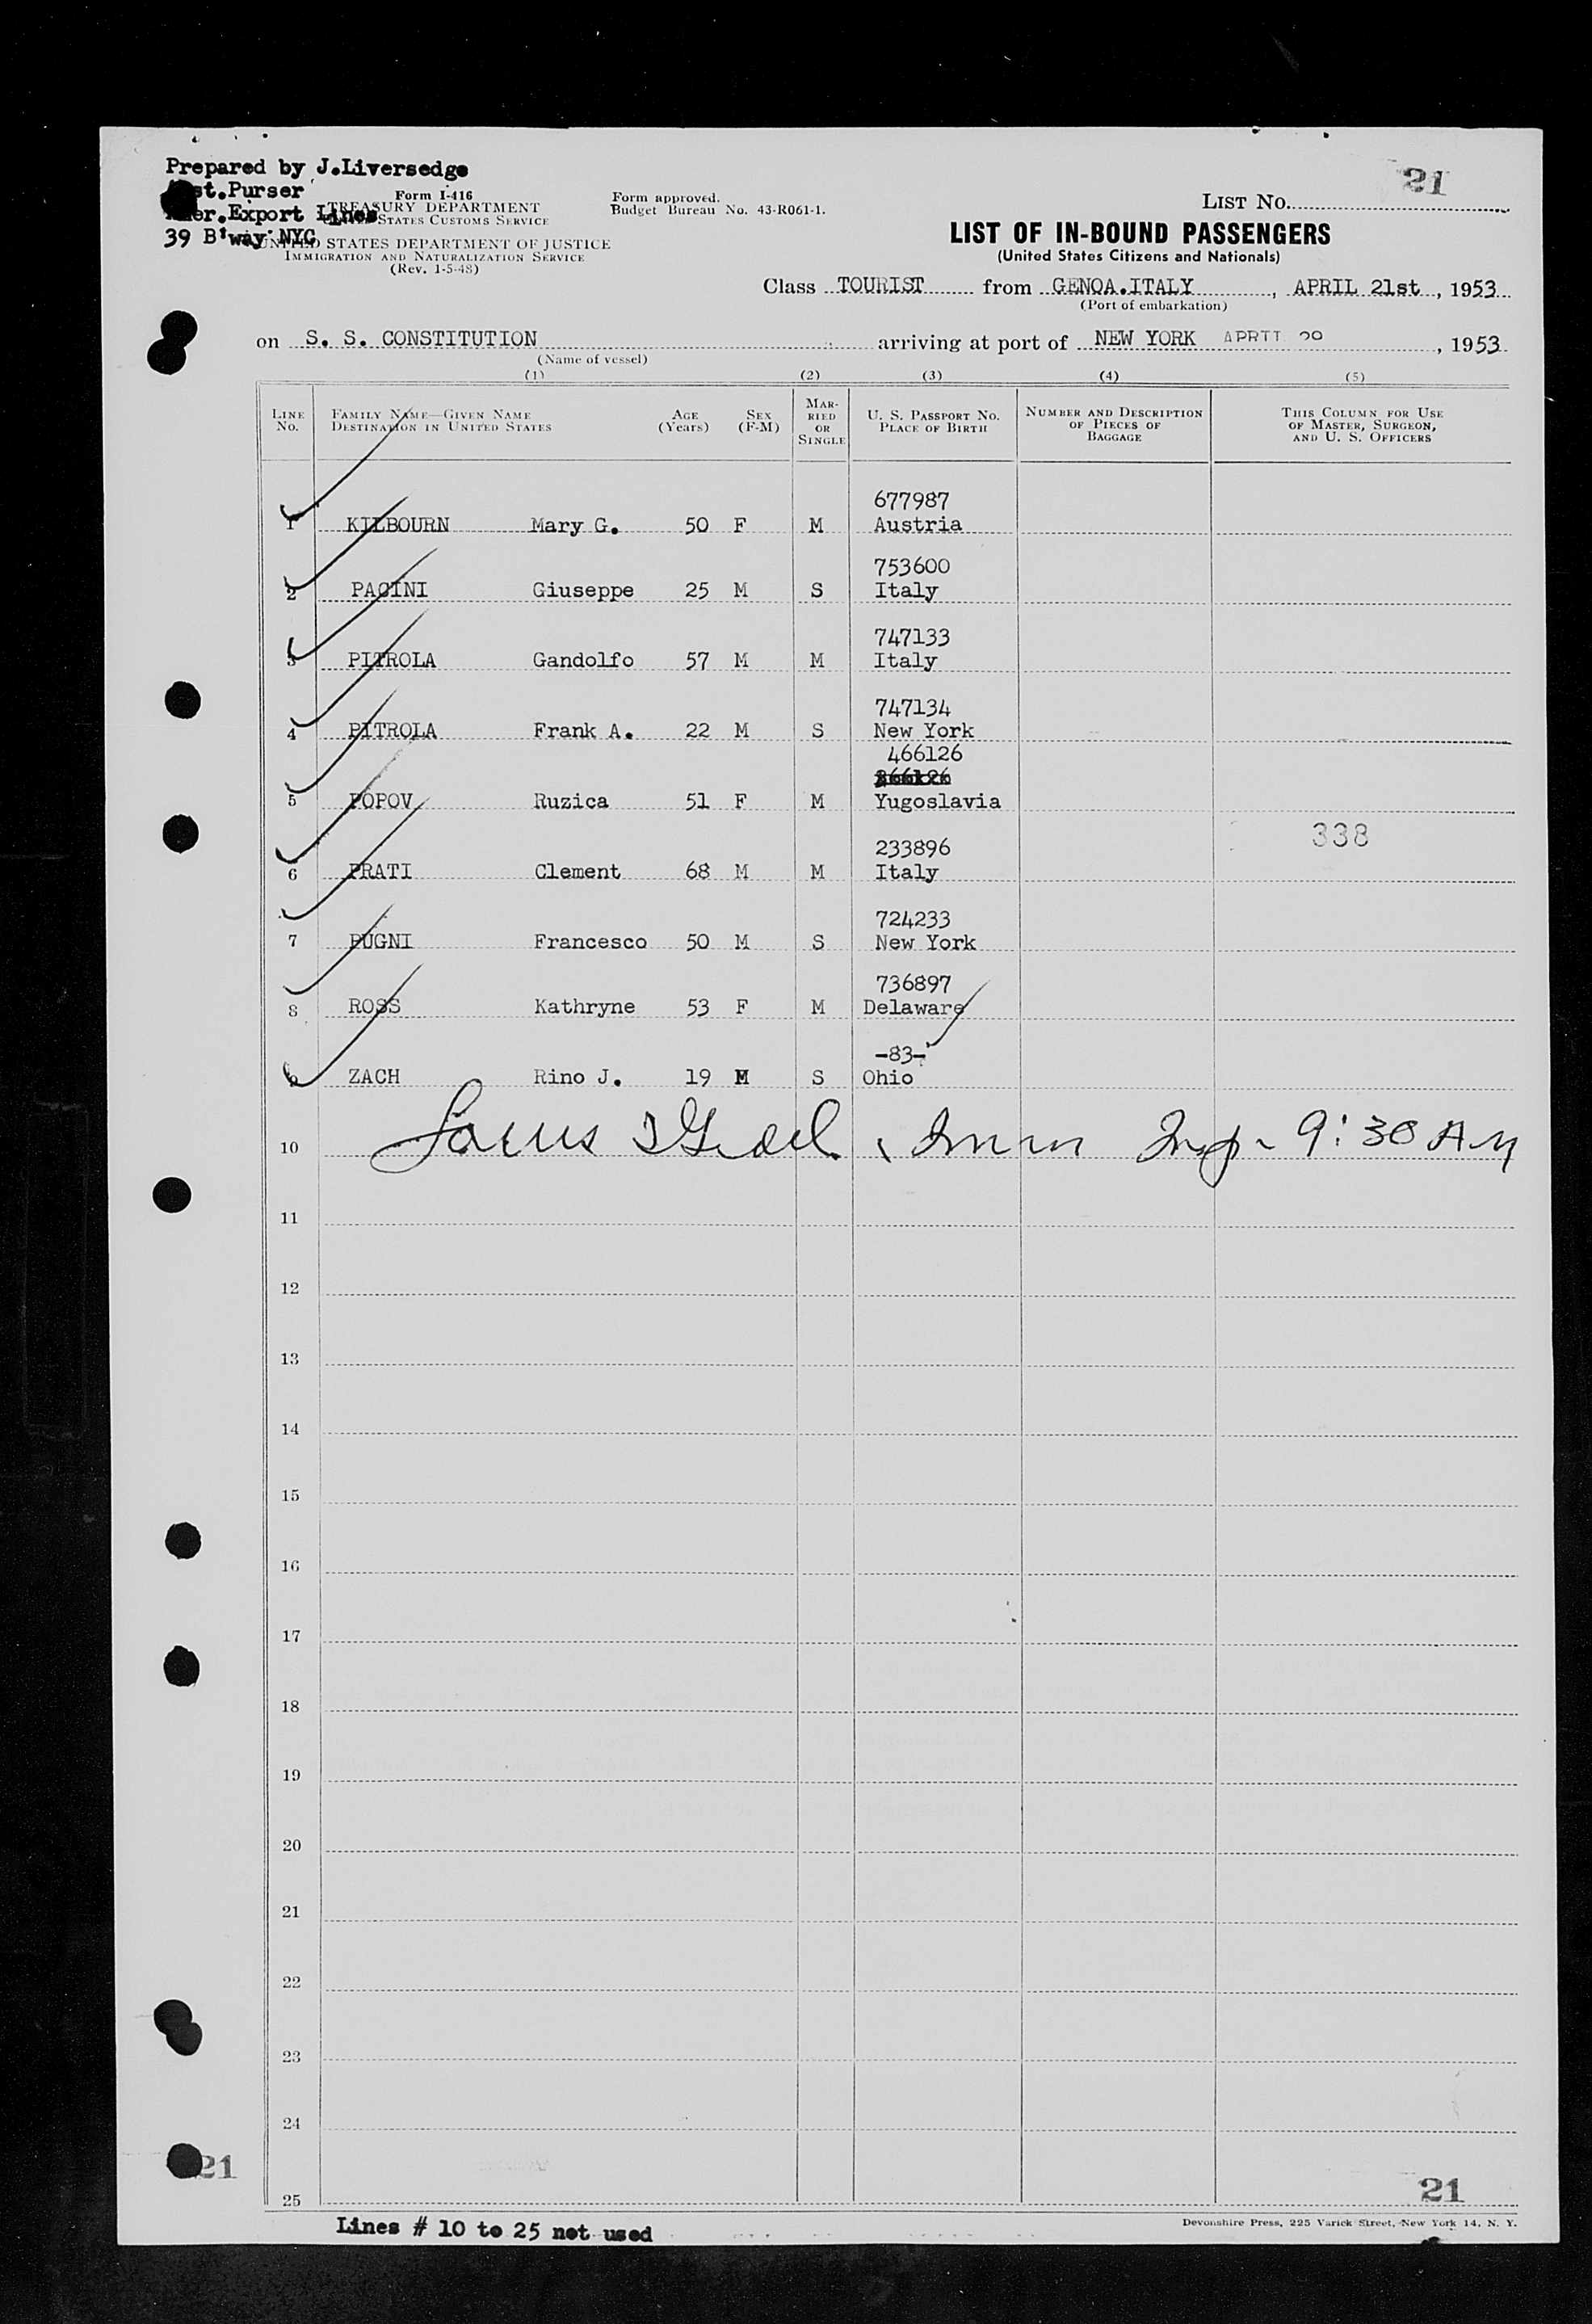 Prepared by J.Liversedge
st.Purser
er.Export Lines
39 B'way NYC
Form I-416
TREASURY DEPARTMENT
STATES CUSTOMS SERVICE
UNITED STATES DEPARTMENT OF JUSTICE
IMMIGRATION AND NATURALIZATION SERVICE
(Rev. 1-5-48)
Form approved.
Budget Bureau No. 43-R061-1.
21
LIST NO.
LIST OF IN-BOUND PASSENGERS
(United States Citizens and Nationals)
Class TOURIST from GENOA.ITALY, APRIL 21st, 1953
(Port of embarkation)
on S. S. CONSTITUTION arriving at port of NEW YORK APRIL 29, 1953
(Name of vessel)
(1) (2) (3) (4) (5)
LINE No. FAMILY NAME—GIVEN NAME DESTINATION IN UNITED STATES AGE (Years) SEX (F-M) MARRIED OR SINGLE U. S. PASSPORT NO. PLACE OF BIRTH NUMBER AND DESCRIPTION OF PIECES OF BAGGAGE THIS COLUMN FOR USE OF MASTER, SURGEON, AND U. S. OFFICERS
677987
1 KILBOURN Mary G. 50 F M Austria
753600
2 PACINI Giuseppe 25 M S Italy
747133
3 PITROLA Gandolfo 57 M M Italy
747134
4 PITROLA Frank A. 22 M S New York
466126
5 POPOV Ruzica 51 F M Yugoslavia
338
233896
6 PRATI Clement 68 M M Italy
724233
7 PUGNI Francesco 50 M S New York
736897
8 ROSS Kathryne 53 F M Delaware
-83-
9 ZACH Rino J. 19 M S Ohio
10 Imm Insp - 9:30 AM
11
12
13
14
15
16
17
18
19
20
21
22
23
24
21
25
21
Lines # 10 to 25 not used
Devonshire Press, 225 Varick Street, New York 14, N. Y.